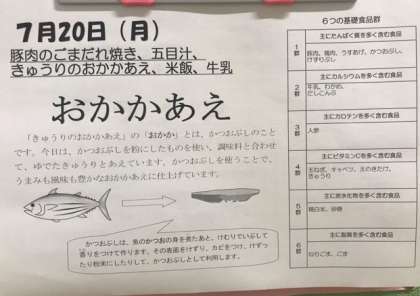 7月20日（月）
豚肉のごまだれ焼き、五目汁、
きゅうりのおかかあえ、米飯、牛乳
おかかあえ
「きゅうりのおかかあえ」の「おかか」とは、かつおぶしのこと
です。今日は、かつおぶしを粉にしたものを使い、調味料と合わせ
て、ゆでたきゅうりとあえています。かつおぶしを使うことで、
うまみも風味も豊かなおかかあえに仕上げています。
かつおぶしは、魚のかつおの身を煮たあと、けむりでいぶして
香りをつけて作ります。その表面をけずり、カビをつけ、けずっ
たり粉末にしたりして、かつおぶしとして利用します。
６つの基礎食品群
1群
主にたんぱく質を多く含む食品
豚肉、鶏肉、うすあげ、かつおぶし、
けずりぶし
2群
主にカルシウムを多く含む食品
牛乳、わかめ、
だしこんぶ
3群
主にカロテンを多く含む食品
人参
4群
主にビタミンCを多く含む食品
玉ねぎ、キャベツ、えのきだけ、
きゅうり
5群
主に炭水化物を多く含む食品
精白米、砂糖
6群
主に脂質を多く含む食品
ねりごま、ごま